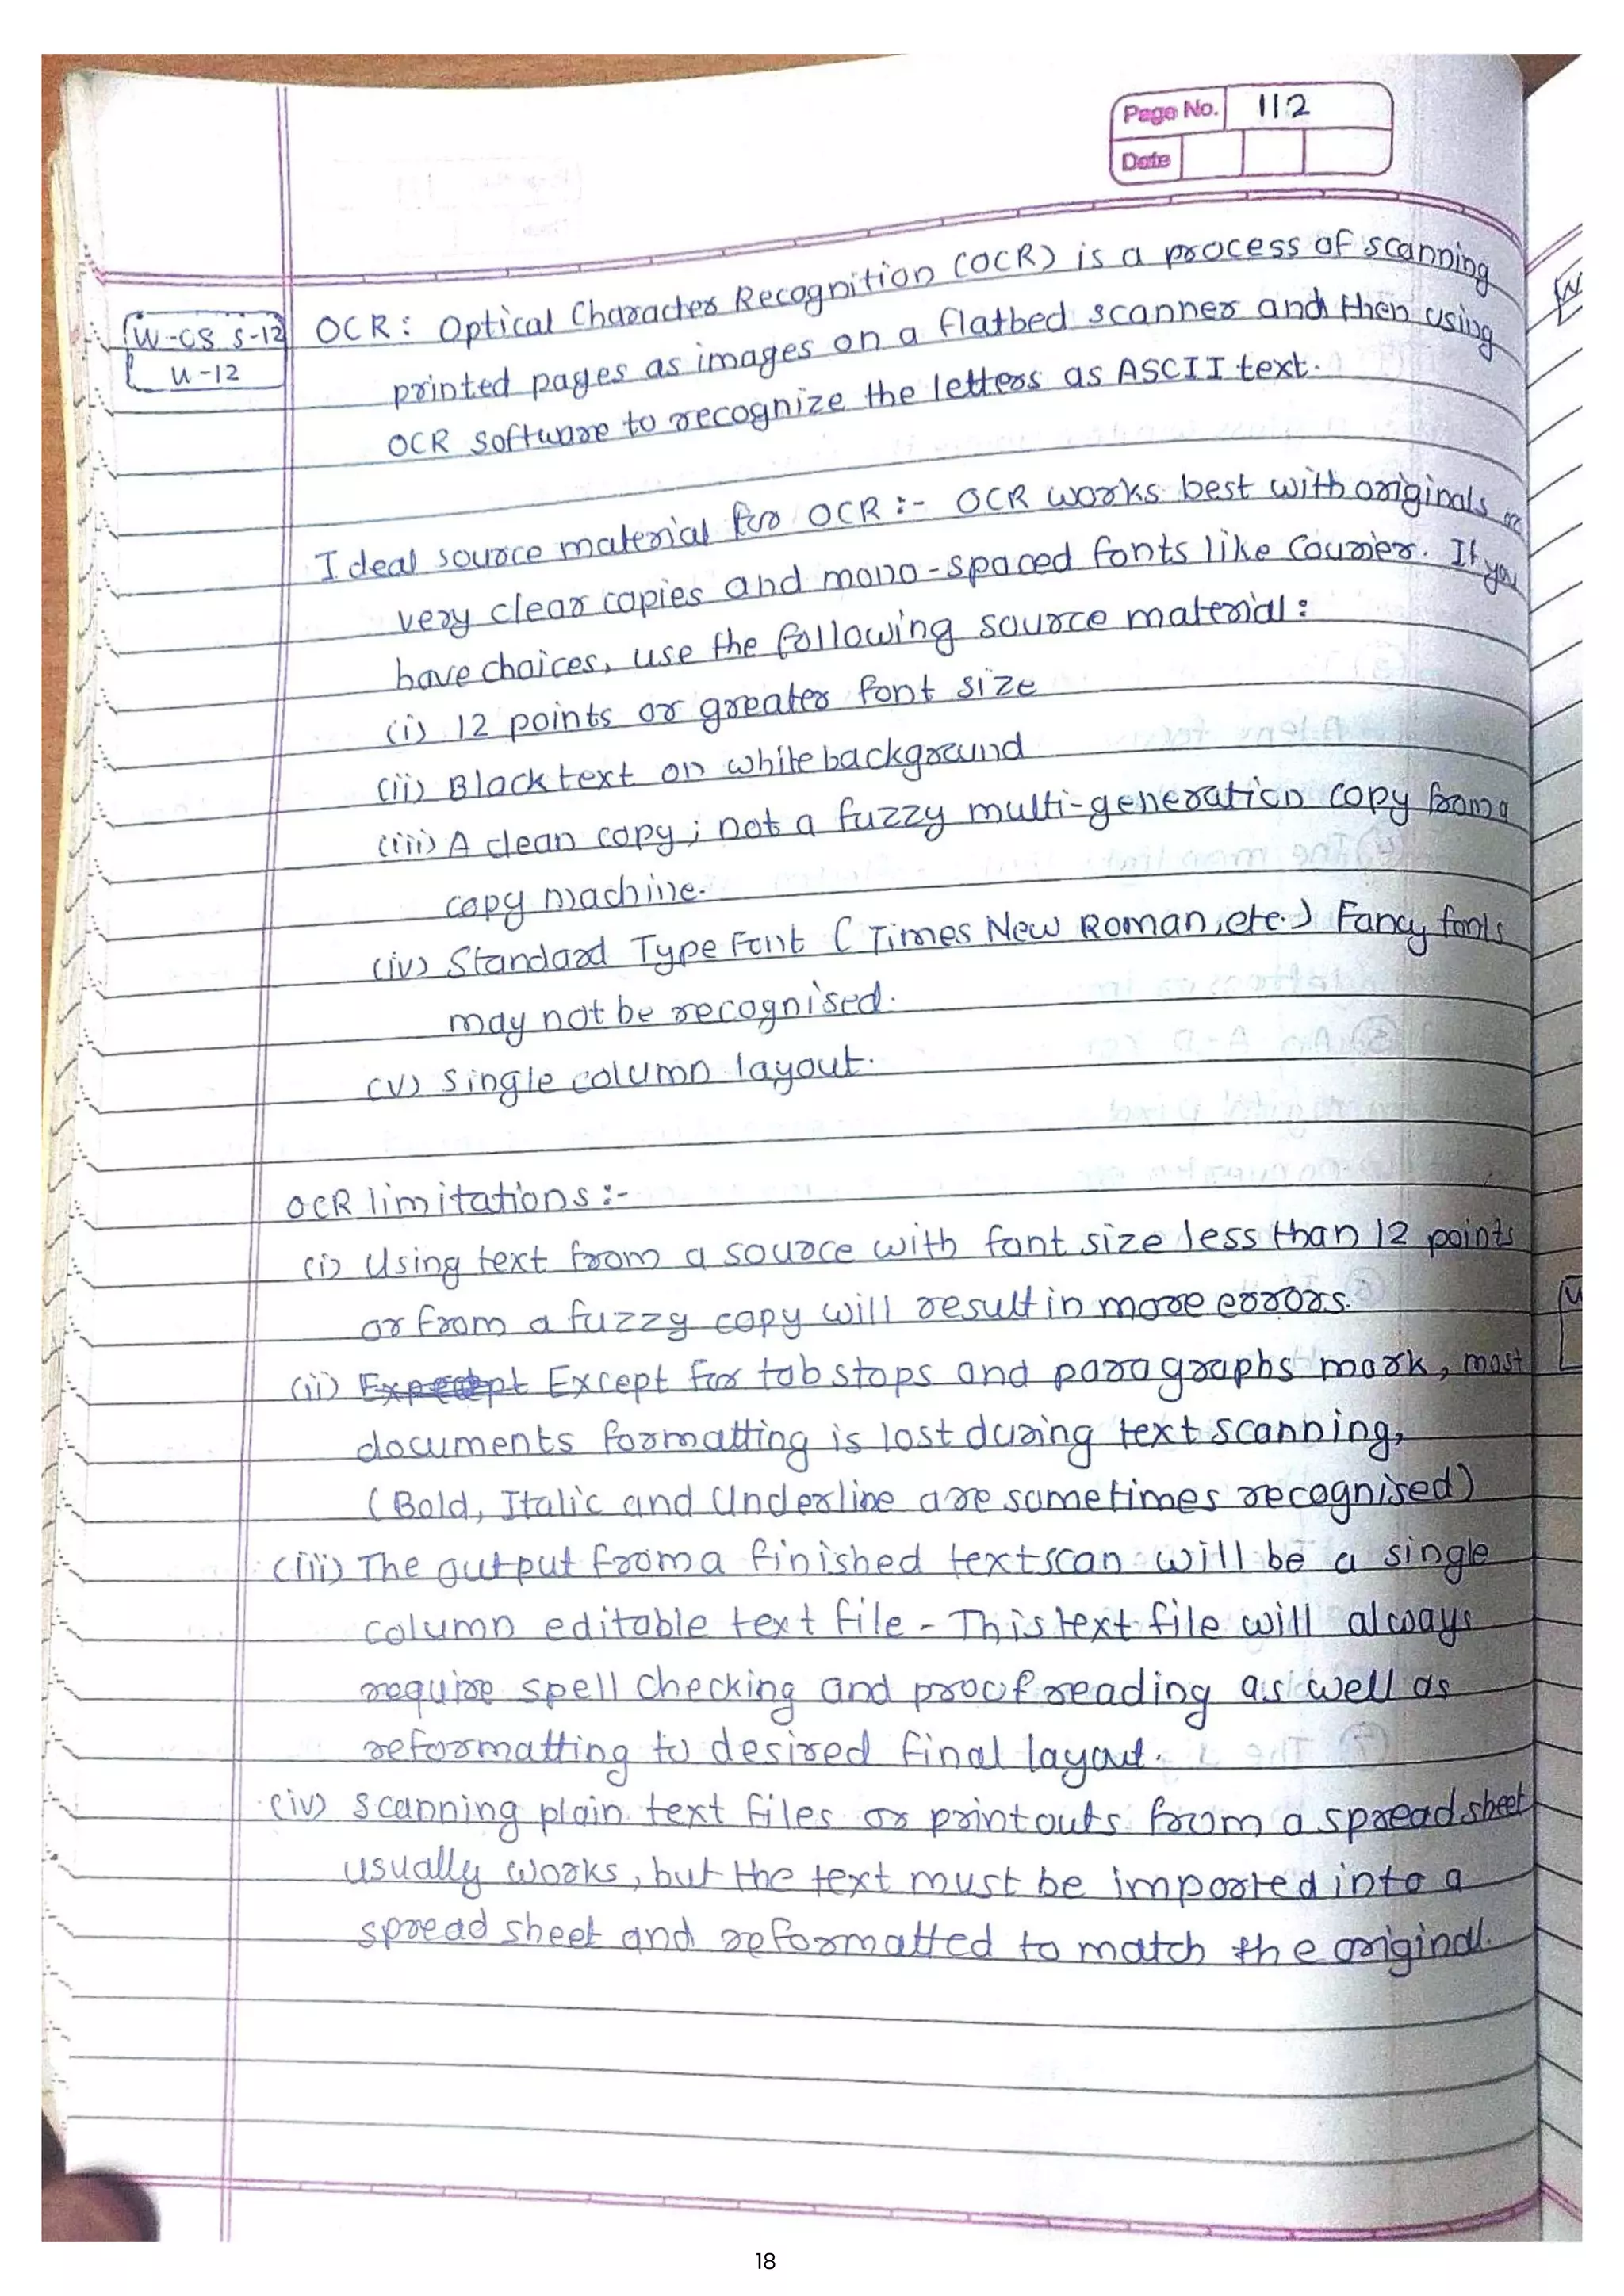 Page No. 112
Date
W-08 S-12
U-12
OCR : Optical Character Recognition (OCR) is a process of scanning
printed pages as images on a flatbed scanner and then using
OCR software to recognize the letters as ASCII text.
Ideal source material for OCR :- OCR works best with originals or
very clear copies and mono-spaced fonts like Courier. If you
have choices, use the following source material :
(i) 12 points or greater font size
(ii) Black text on white background
(iii) A clean copy ; not a fuzzy multi-generation copy from a
copy machine.
(iv) Standard Type Font ( Times New Roman, etc.) Fancy fonts
may not be recognised.
(v) Single column layout.
OCR limitations :-
(i) Using text from a source with font size less than 12 points
or from a fuzzy copy will result in more errors.
(ii) Except for tab stops and paragraphs mark, most
documents formatting is lost during text scanning,
( Bold, Italic and Underline are sometimes recognised)
(iii) The output from a finished textscan will be a single
column editable text file - This text file will always
require spell checking and proof reading as well as
reformatting to desired final layout.
(iv) Scanning plain text files or printouts from a spreadsheet
usually works, but the text must be imported into a
spread sheet and reformatted to match the original.
18